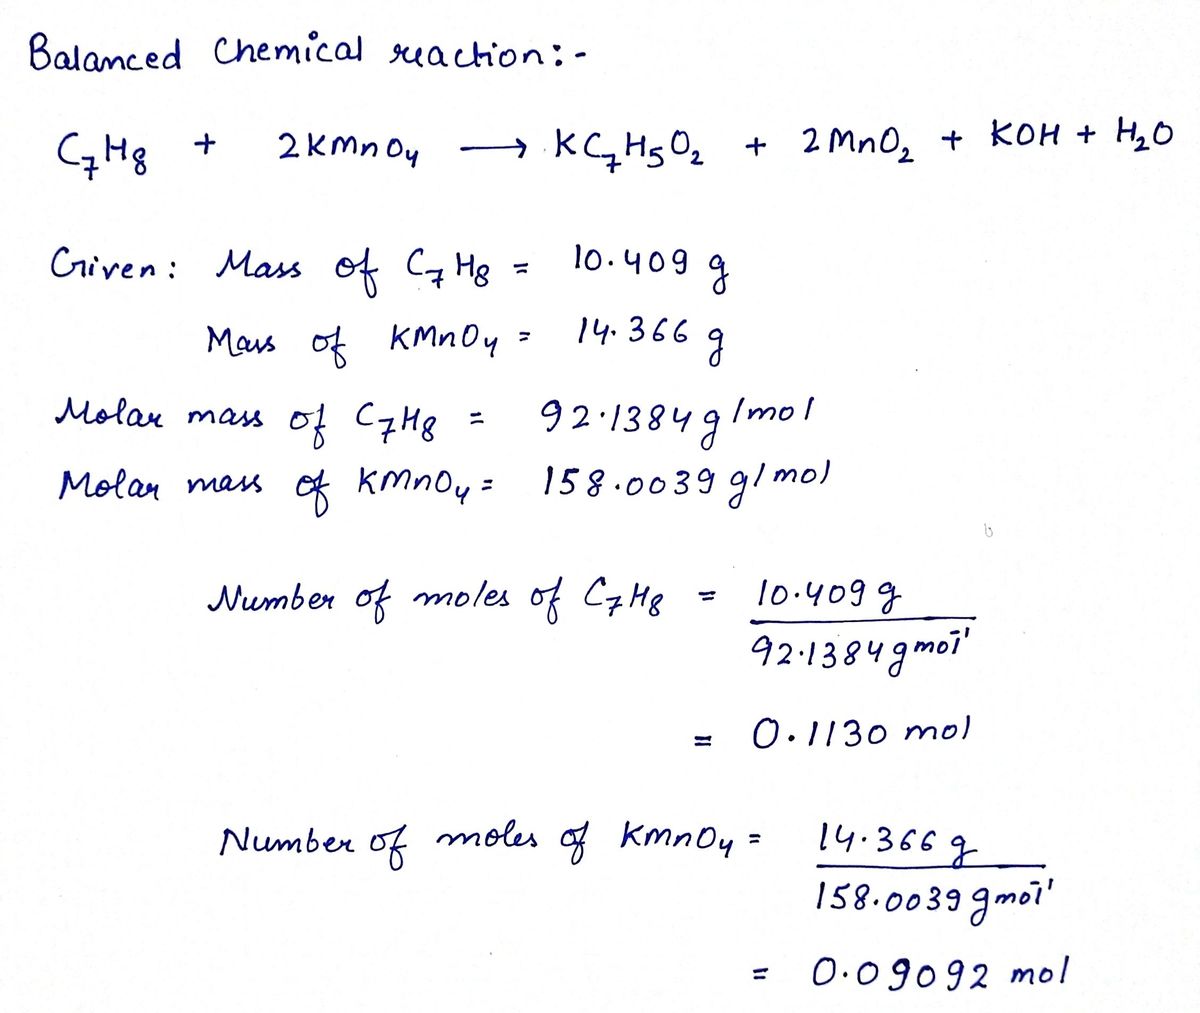 Balanced Chemical reaction:-
C₇H₈ + 2KMnO₄ → KC₇H₅O₂ + 2MnO₂ + KOH + H₂O
Given: Mass of C₇H₈ = 10.409 g
Mass of KMnO₄ = 14.366 g
Molar mass of C₇H₈ = 92.1384 g/mol
Molar mass of KMnO₄ = 158.0039 g/mol
Number of moles of C₇H₈ = 10.409 g
92.1384 g mol⁻¹
= 0.1130 mol
Number of moles of KMnO₄ = 14.366 g
158.0039 g mol⁻¹
= 0.09092 mol